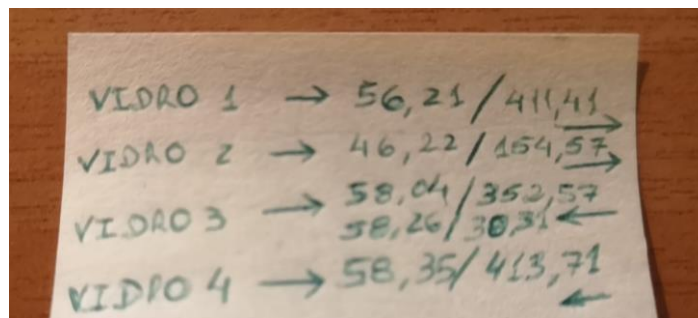 VIDRO 1 → 56,21/411,41
→
VIDRO 2 → 46,22/154,57
→
VIDRO 3 → 58,04/352,57
58,26/30,31 ←
VIDRO 4 → 58,35/413,71
←